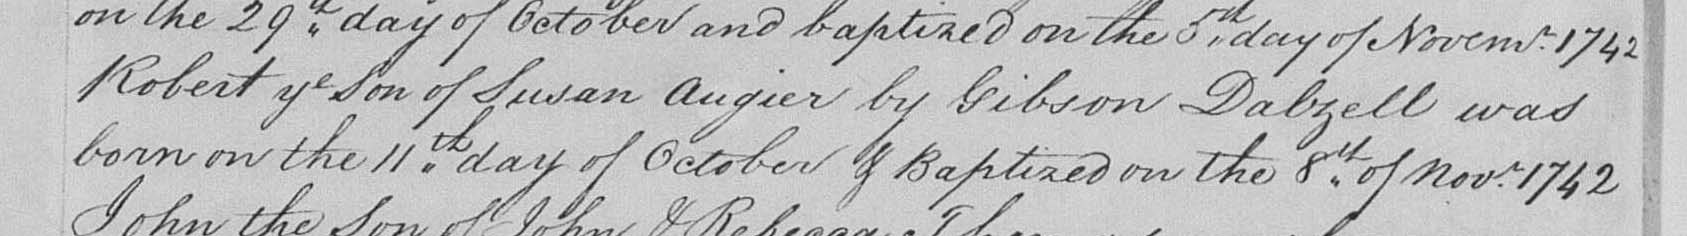 on the 29th day of October and baptized on the 5th day of Novemr 1742
Robert ye Son of Susan Augier by Gibson Dalzell was
born on the 11th day of October & Baptized on the 8th of Novr 1742
John the Son of John & Rebecca